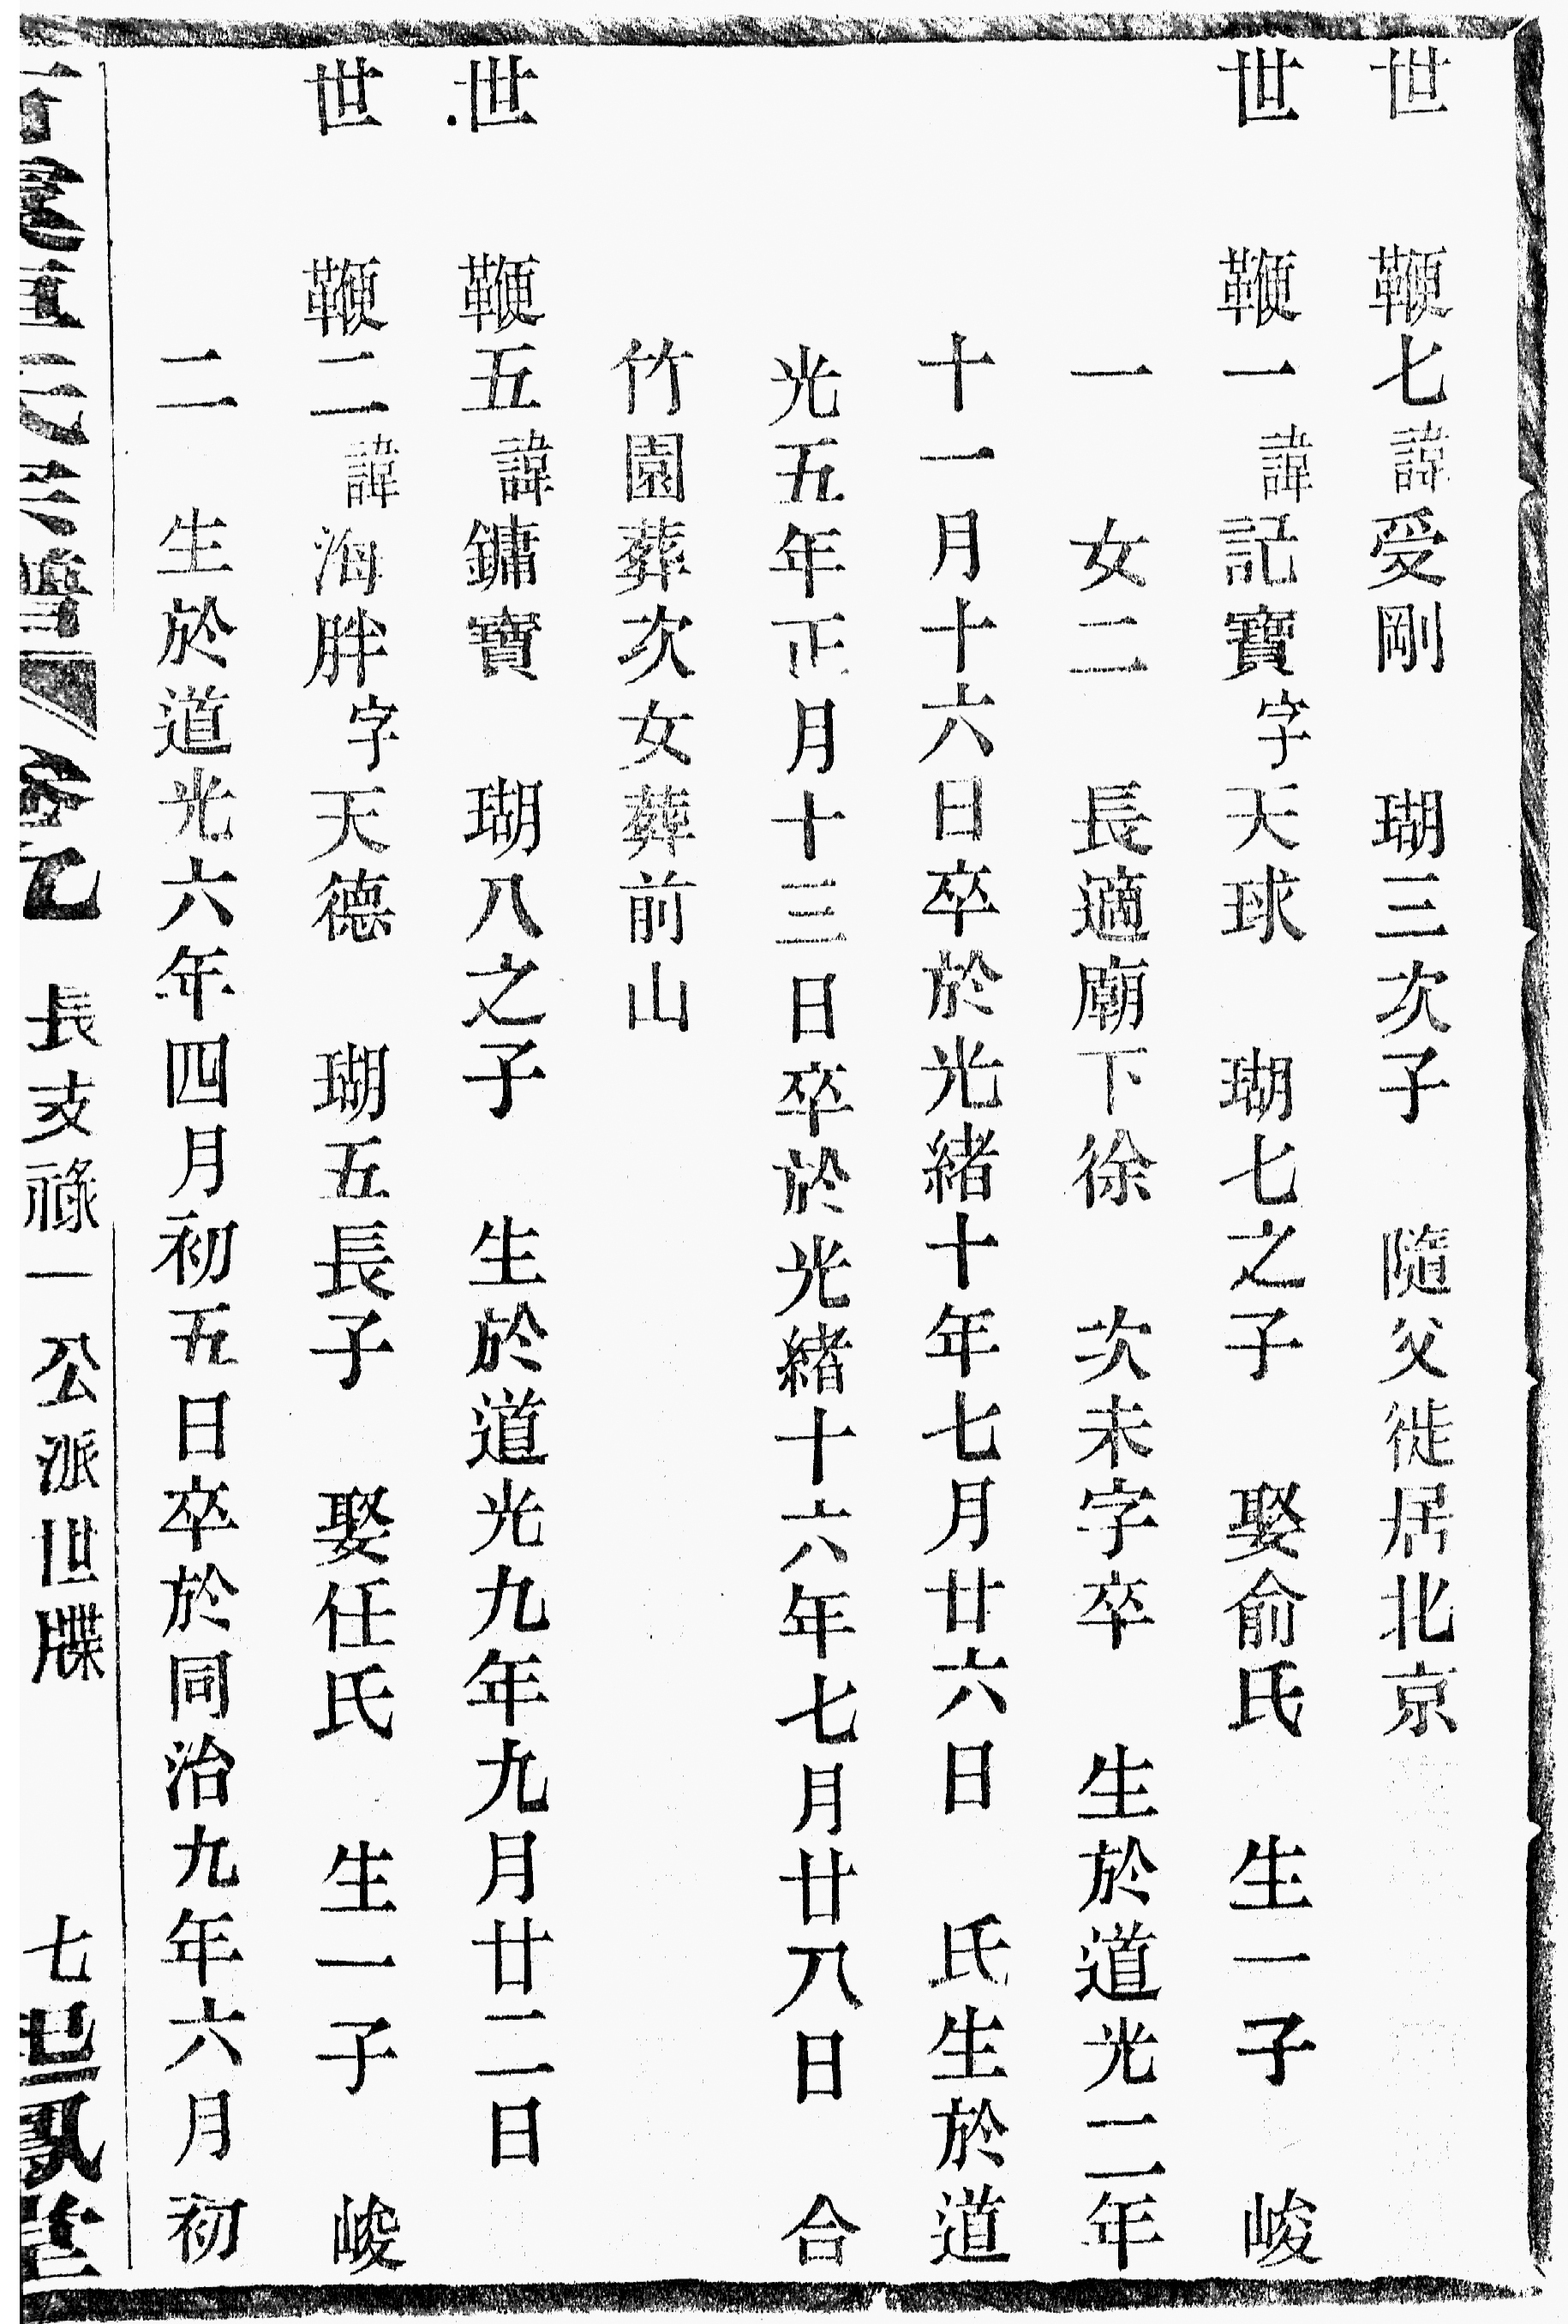 世 鞭七諱受剛 瑚三次子 隨父徙居北京
世 鞭一諱記寶字天球 瑚七之子 娶俞氏 生一子 峻
一 女二 長適廟下徐 次未字卒 生於道光二年
十一月十六日卒於光緒十年七月廿六日 氏生於道
光五年正月十三日卒於光緒十六年七月廿八日 合
竹園葬次女葬前山
世 鞭五諱鏞寶 瑚八之子 生於道光九年九月廿二日
世 鞭二諱海胖字天德 瑚五長子 娶任氏 生一子 峻
二 生於道光六年四月初五日卒於同治九年六月初
長支祿一公派世牒 七